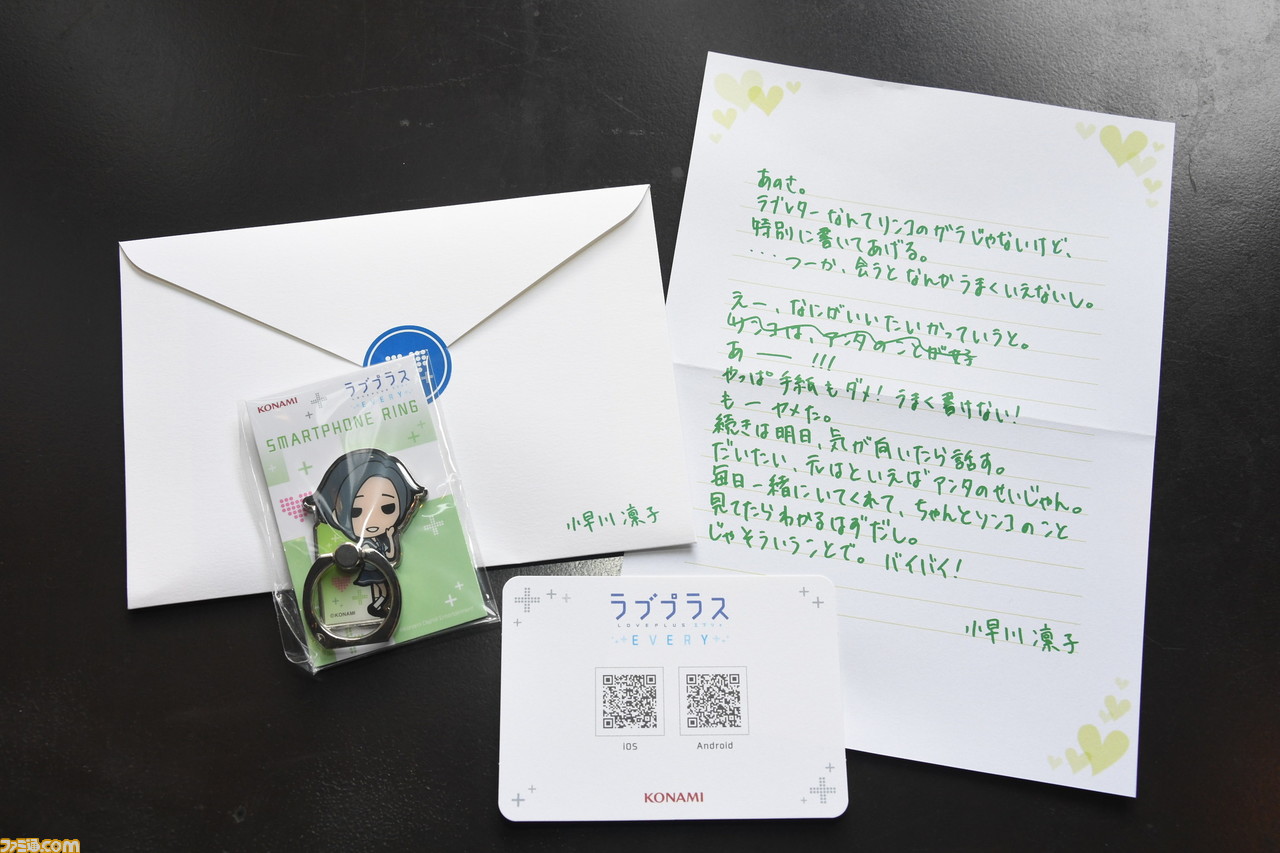 KONAMI
ラブプラス
EVERY
SMARTPHONE RING
©KONAMI
小早川 凛子
あのさ。
ラブレターなんてリンコのガラじゃないけど、
特別に書いてあげる。
・・・つーか、会うとなんかうまくいえないし。
えー、なにがいいたいかっていうと。
リンコは、アンタのことが好
あ――!!!
やっぱ手紙もダメ!うまく書けない!
もーヤメた。
続きは明日、気が向いたら話す。
だいたい、元はといえばアンタのせいじゃん。
毎日一緒にいてくれて、ちゃんとリンコのこと
見てたらわかるはずだし。
じゃそういうことで。バイバイ!
小早川 凛子
ラブプラス
LOVEPLUS EVERY
EVERY
iOS
Android
KONAMI
ファミ通.com